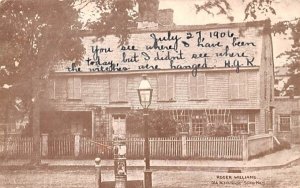 July 27, 1906
You see where I have been
today, but I didn't see where
the witches are hanged. H.G.K
ROGER WILLIAMS
Old Witch House, Salem Mass.